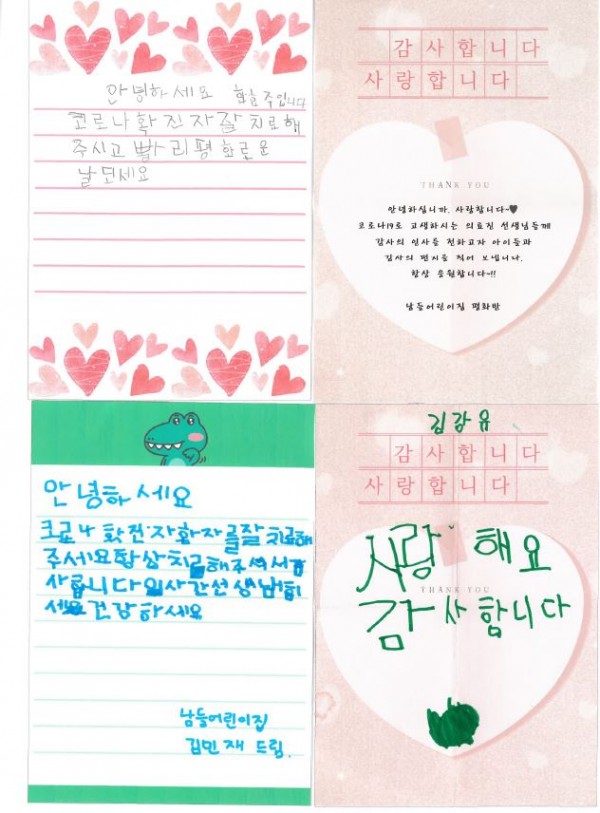 안녕하세요
코로나 확진자 잘 치료해
주시고 빨리 평화로운
날 되세요
감사합니다
사랑합니다
THANK YOU
안녕하십니까. 사랑합니다~♥
코로나19로 고생하시는 의료진 선생님들께
감사의 인사를 전하고자 아이들과
감사의 편지를 적어 보냅니다.
항상 응원합니다~!!
남들어린이집 평화반
안녕하세요
코로나 확진자 환자를 잘 치료해
주세요 항상 치료해주셔서 감
사합니다 의사 간선생님 힘
세요 건강하세요
남들어린이집
김민재 드림.
김강윤
감사합니다
사랑합니다
사랑해요
THANK YOU
감사합니다